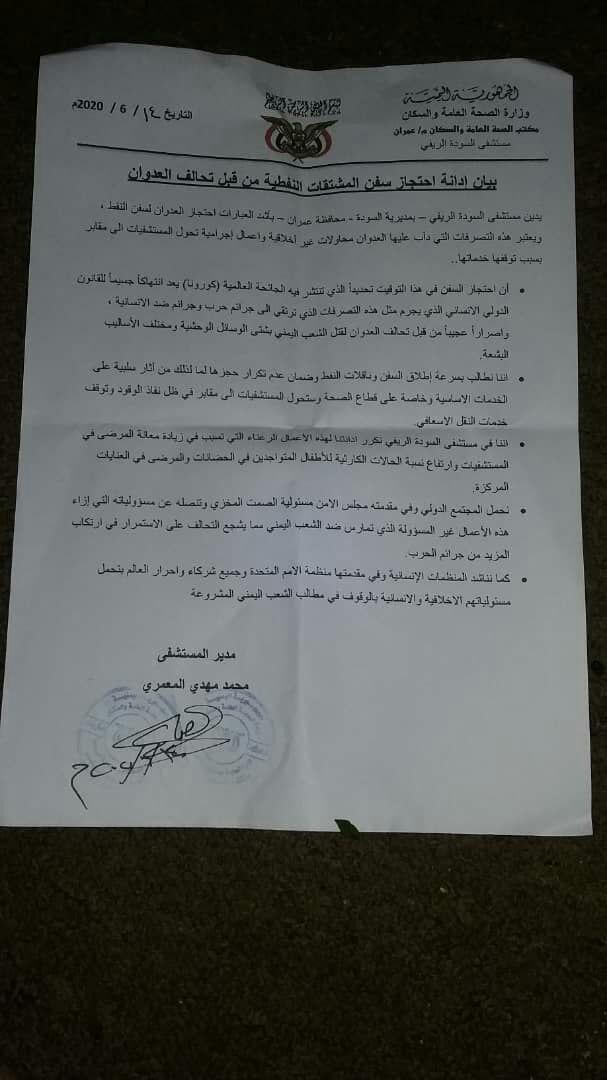 الجمهورية اليمنية
وزارة الصحة العامة والسكان
مكتب الصحة العامة والسكان م/ عمران
مستشفى السودة الريفي
التاريخ ١٤ / 6 / 2020م
بيان إدانة احتجاز سفن المشتقات النفطية من قبل تحالف العدوان
يدين مستشفى السودة الريفي – بمديرية السودة - محافظة عمران – بأشد العبارات احتجاز العدوان لسفن النفط ،
ويعتبر هذه التصرفات التي دأب عليها العدوان محاولات غير أخلاقية واعمال إجرامية تحول المستشفيات الى مقابر
بسبب توقفها خدماتها..
• أن احتجاز السفن في هذا التوقيت تحديداً الذي تنتشر فيه الجائحة العالمية (كورونا) يعد انتهاكاً جسيماً للقانون
الدولي الانساني الذي يجرم مثل هذه التصرفات الذي ترتقي الى جرائم حرب وجرائم ضد الانسانية ،
واصراراً عجيباً من قبل تحالف العدوان لقتل الشعب اليمني بشتى الوسائل الوحشية ومختلف الأساليب
البشعة.
• اننا نطالب بسرعة إطلاق السفن وناقلات النفط وضمان عدم تكرار حجزها لما لذلك من آثار سلبية على
الخدمات الاساسية وخاصة على قطاع الصحة وستحول المستشفيات الى مقابر في ظل نفاذ الوقود وتوقف
خدمات النقل الاسعافي.
• اننا في مستشفى السودة الريفي نكرر ادانتنا لهذه الأعمال الرعناء التي تسبب في زيادة معاناة المرضى في
المستشفيات وارتفاع نسبة الحالات الكارثية للأطفال المتواجدين في الحضانات والمرضى في العنايات
المركزة.
• نحمل المجتمع الدولي وفي مقدمته مجلس الامن مسئولية الصمت المخزي وتنصله عن مسؤولياته التي إزاء
هذه الأعمال غير المسؤولة الذي تمارس ضد الشعب اليمني مما يشجع التحالف على الاستمرار في ارتكاب
المزيد من جرائم الحرب.
• كما نناشد المنظمات الإنسانية وفي مقدمتها منظمة الامم المتحدة وجميع شركاء واحرار العالم بتحمل
مسئولياتهم الاخلاقية والانسانية بالوقوف في مطالب الشعب اليمني المشروعة
مدير المستشفى
محمد مهدي المعمري